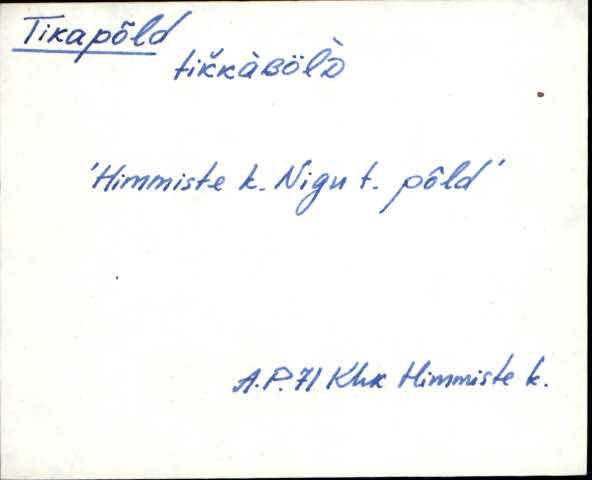 Tikapõld
tik̆kàʙöl̀ᴅ
'Himmiste k. Nigu t. põld'
A.P. 71 Khk Himmiste k.